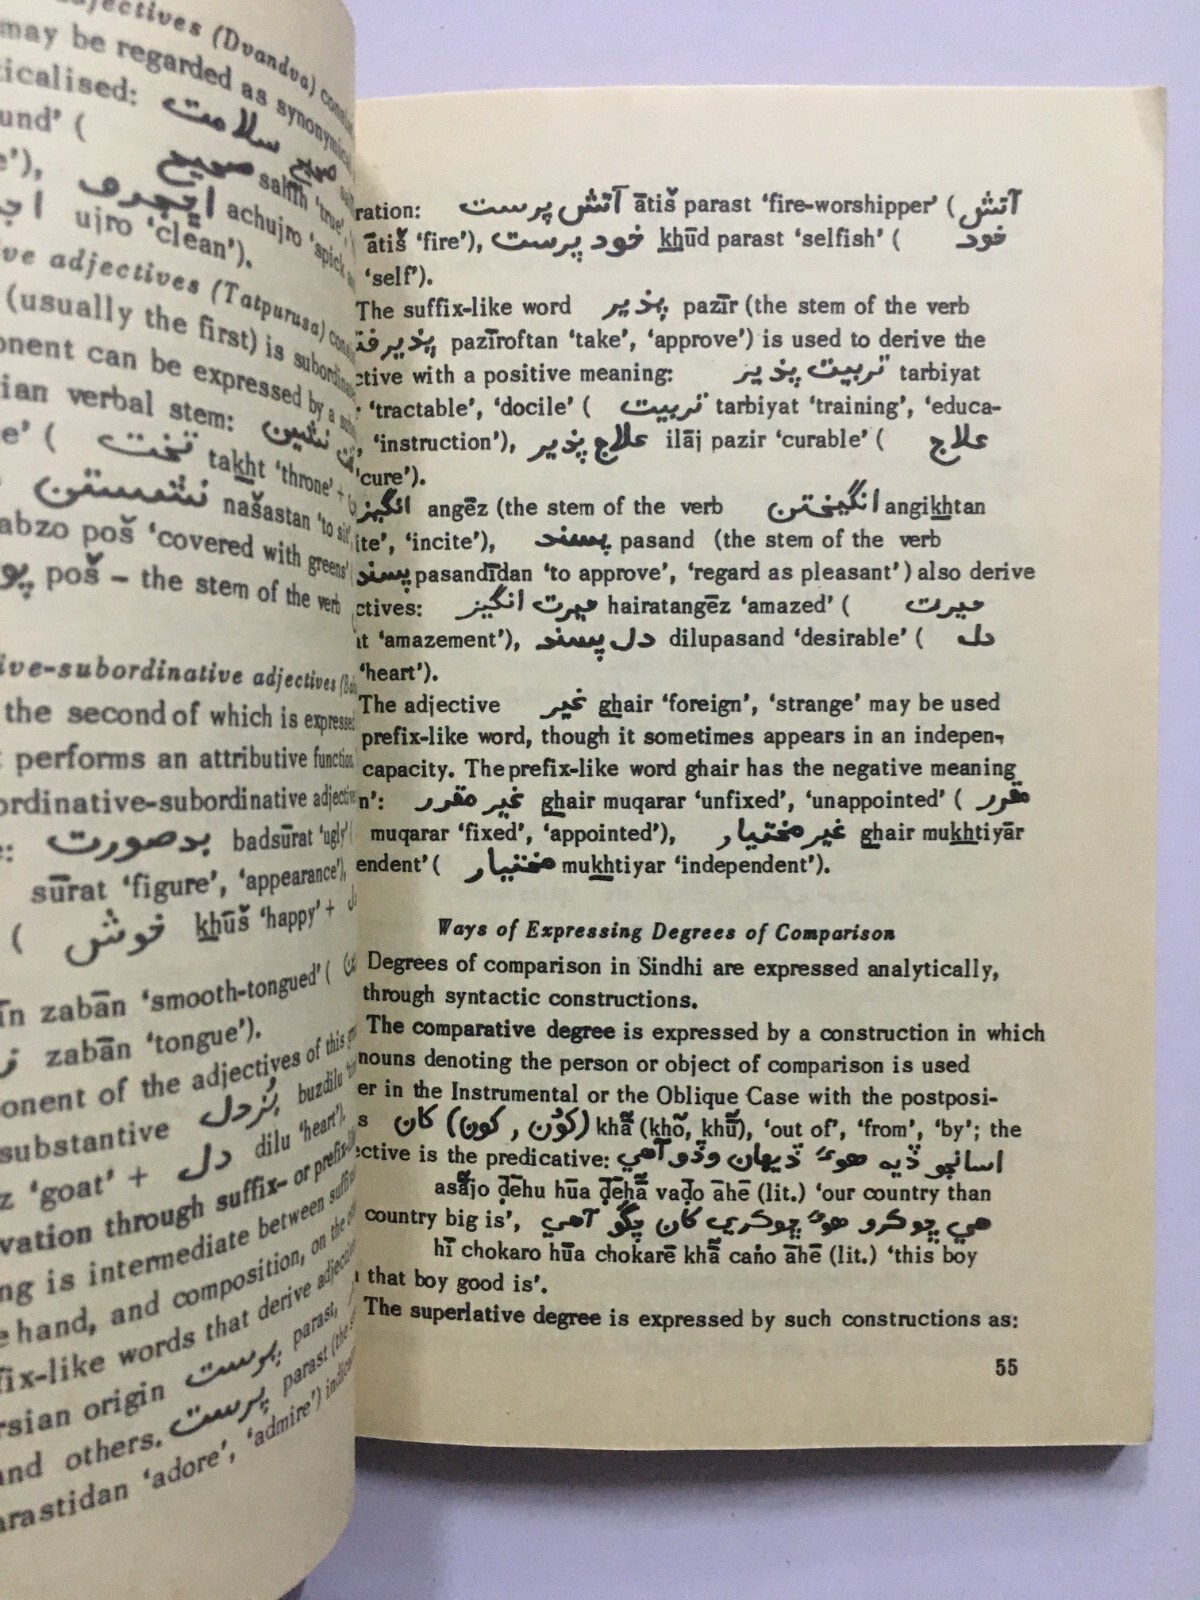 djectives (Dvandva)
may be regarded as synonymical
icalised: صحيح سلامت
und' (
e'), صحيح sahīh 'true',
اڇجرو achujro 'spick
ujro 'clean').
ve adjectives (Tatpurusa)
(usually the first) is subordinate
onent can be expressed by a
ian verbal stem: تخت نشين
e' ( تخت takht 'throne' +
نشستن našastan 'to sit',
abzo poš 'covered with greens'
پو poš – the stem of the verb
ive-subordinative adjectives
the second of which is expressed
performs an attributive function.
ordinative-subordinative adjective
e: بدصورت badsūrat 'ugly'
sūrat 'figure', 'appearance'),
( خوش khūš 'happy' +
īn zabān 'smooth-tongued' (
ز zabān 'tongue').
onent of the adjectives of this
substantive بُزدل buzdilu
z 'goat' + دل dilu 'heart').
vation through suffix- or prefix-
ng is intermediate between suffix
e hand, and composition, on the
fix-like words that derive adjective
rsian origin پرست parast,
and others. پرست parast (the
arastidan 'adore', 'admire')
ration: آتش پرست ātiš parast 'fire-worshipper' ( آتش
ātiš 'fire'), خود پرست khūd parast 'selfish' ( خود
'self').
The suffix-like word پذير pazīr (the stem of the verb
پذيرفت pazīroftan 'take', 'approve') is used to derive the
ctive with a positive meaning: تربيت پذير tarbiyat
'tractable', 'docile' ( تربيت tarbiyat 'training', 'educa-
, 'instruction'), علاج پذير ilāj pazir 'curable' ( علاج
'cure').
انگيز angēz (the stem of the verb انگيختن angikhtan
ite', 'incite'), پسند pasand (the stem of the verb
پسند pasandīdan 'to approve', 'regard as pleasant') also derive
ctives: حيرت انگيز hairatangēz 'amazed' ( حيرت
at 'amazement'), دل پسند dilupasand 'desirable' ( دل
'heart').
The adjective غير ghair 'foreign', 'strange' may be used
prefix-like word, though it sometimes appears in an indepen-
capacity. The prefix-like word ghair has the negative meaning
n': غير مقرر ghair muqarar 'unfixed', 'unappointed' ( مقرر
muqarar 'fixed', 'appointed'), غير مختيار ghair mukhtiyār
endent' ( مختيار mukhtiyar 'independent').
Ways of Expressing Degrees of Comparison
Degrees of comparison in Sindhi are expressed analytically,
through syntactic constructions.
The comparative degree is expressed by a construction in which
nouns denoting the person or object of comparison is used
er in the Instrumental or the Oblique Case with the postposi-
s کان (کون , کُون) khā̃ (khō̃, khū̃), 'out of', 'from', 'by'; the
ective is the predicative: اسانجو ڏيه هوءَ ڏيهان وڏو آهي
asā̃jo ḍēhu hūa ḍēhā̃ vaḍo āhē (lit.) 'our country than
country big is', هي ڇوڪرو هوءَ ڇوڪري کان چڱو آهي
hī chokaro hūa chokarē khā̃ caṅo āhē (lit.) 'this boy
that boy good is'.
The superlative degree is expressed by such constructions as:
55